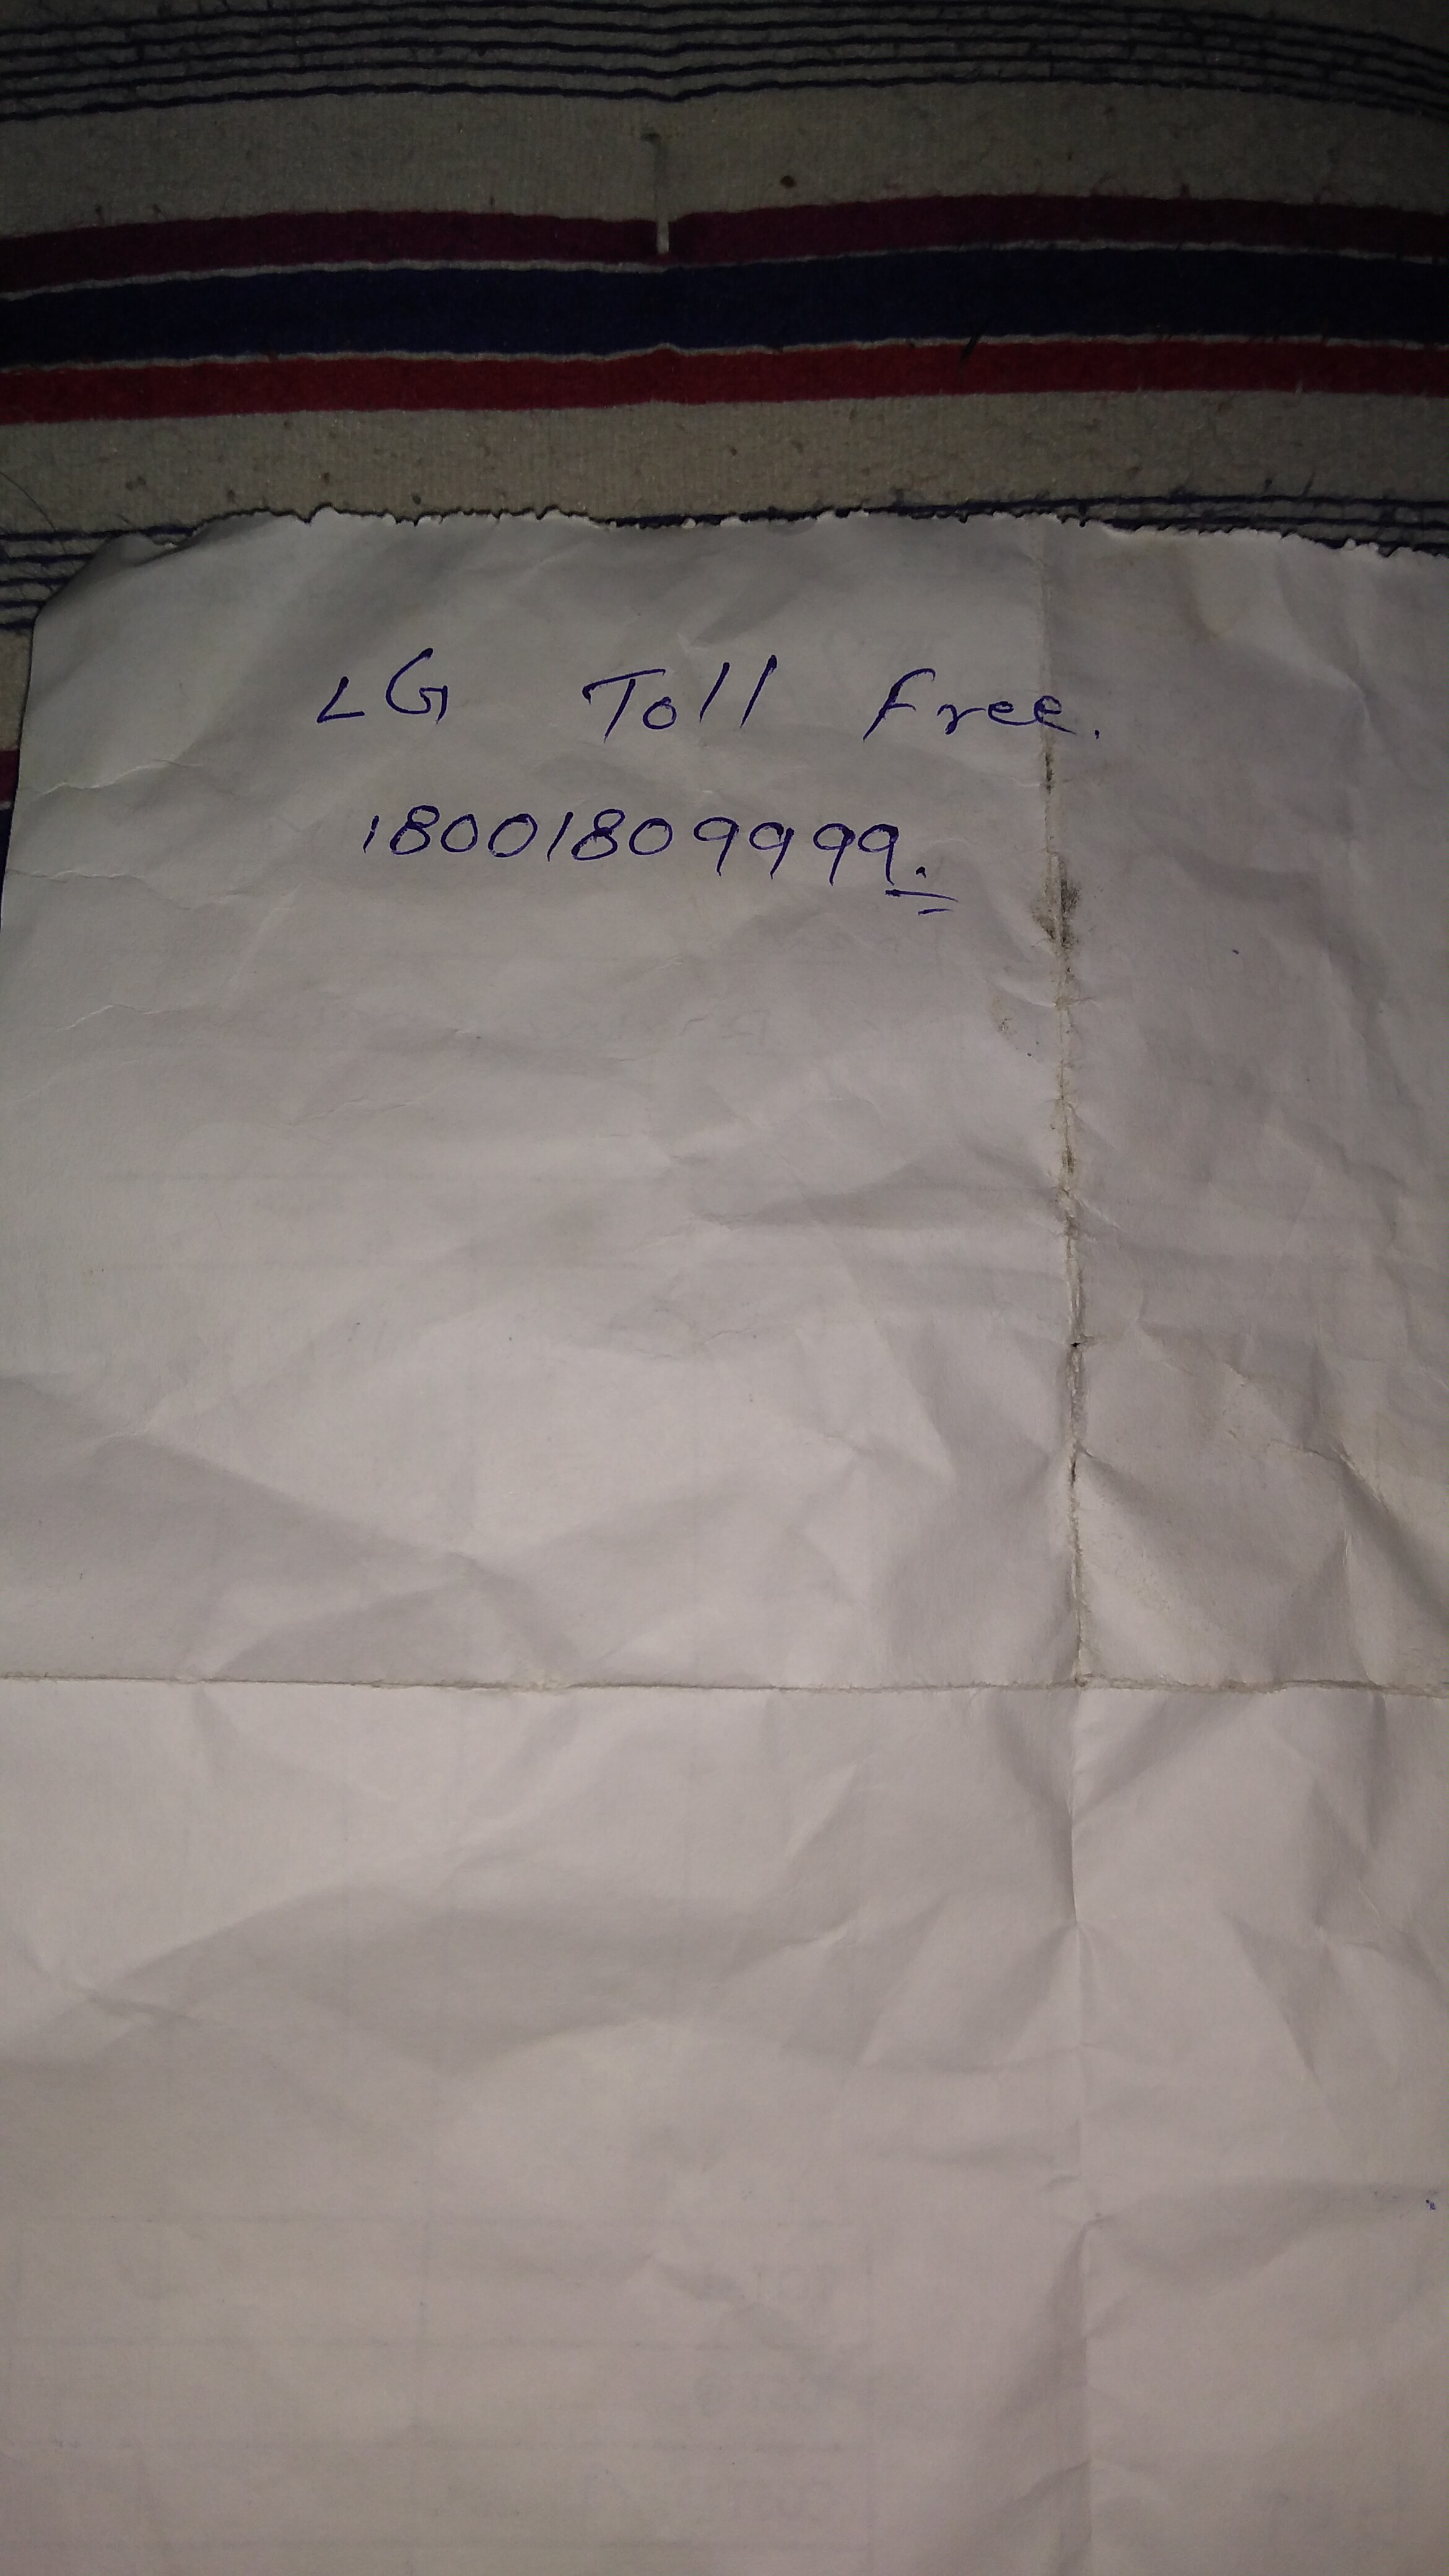 LG Toll free.
18001809999.